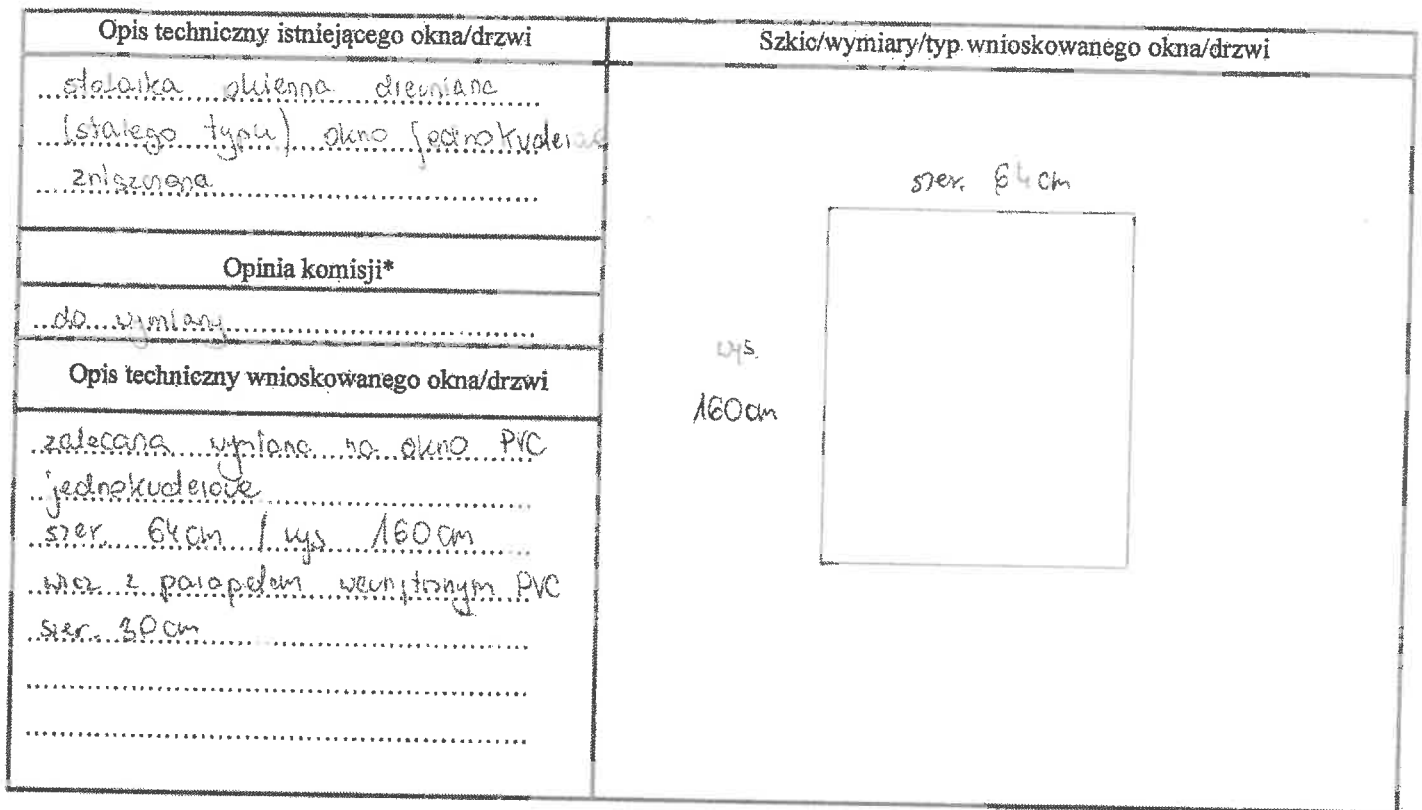 Opis techniczny istniejącego okna/drzwi
stolarka okienna drewniana
(starego typu) okno jednokwatero
zniszczona
Opinia komisji*
do wymiany
Opis techniczny wnioskowanego okna/drzwi
zalecana wymiana na okno PVC
jednokwaterowe
szer. 64cm / wys 160cm
wraz z parapetem wewnętrznym PVC
szer. 30cm
Szkic/wymiary/typ wnioskowanego okna/drzwi
szer. 64cm
wys.
160cm